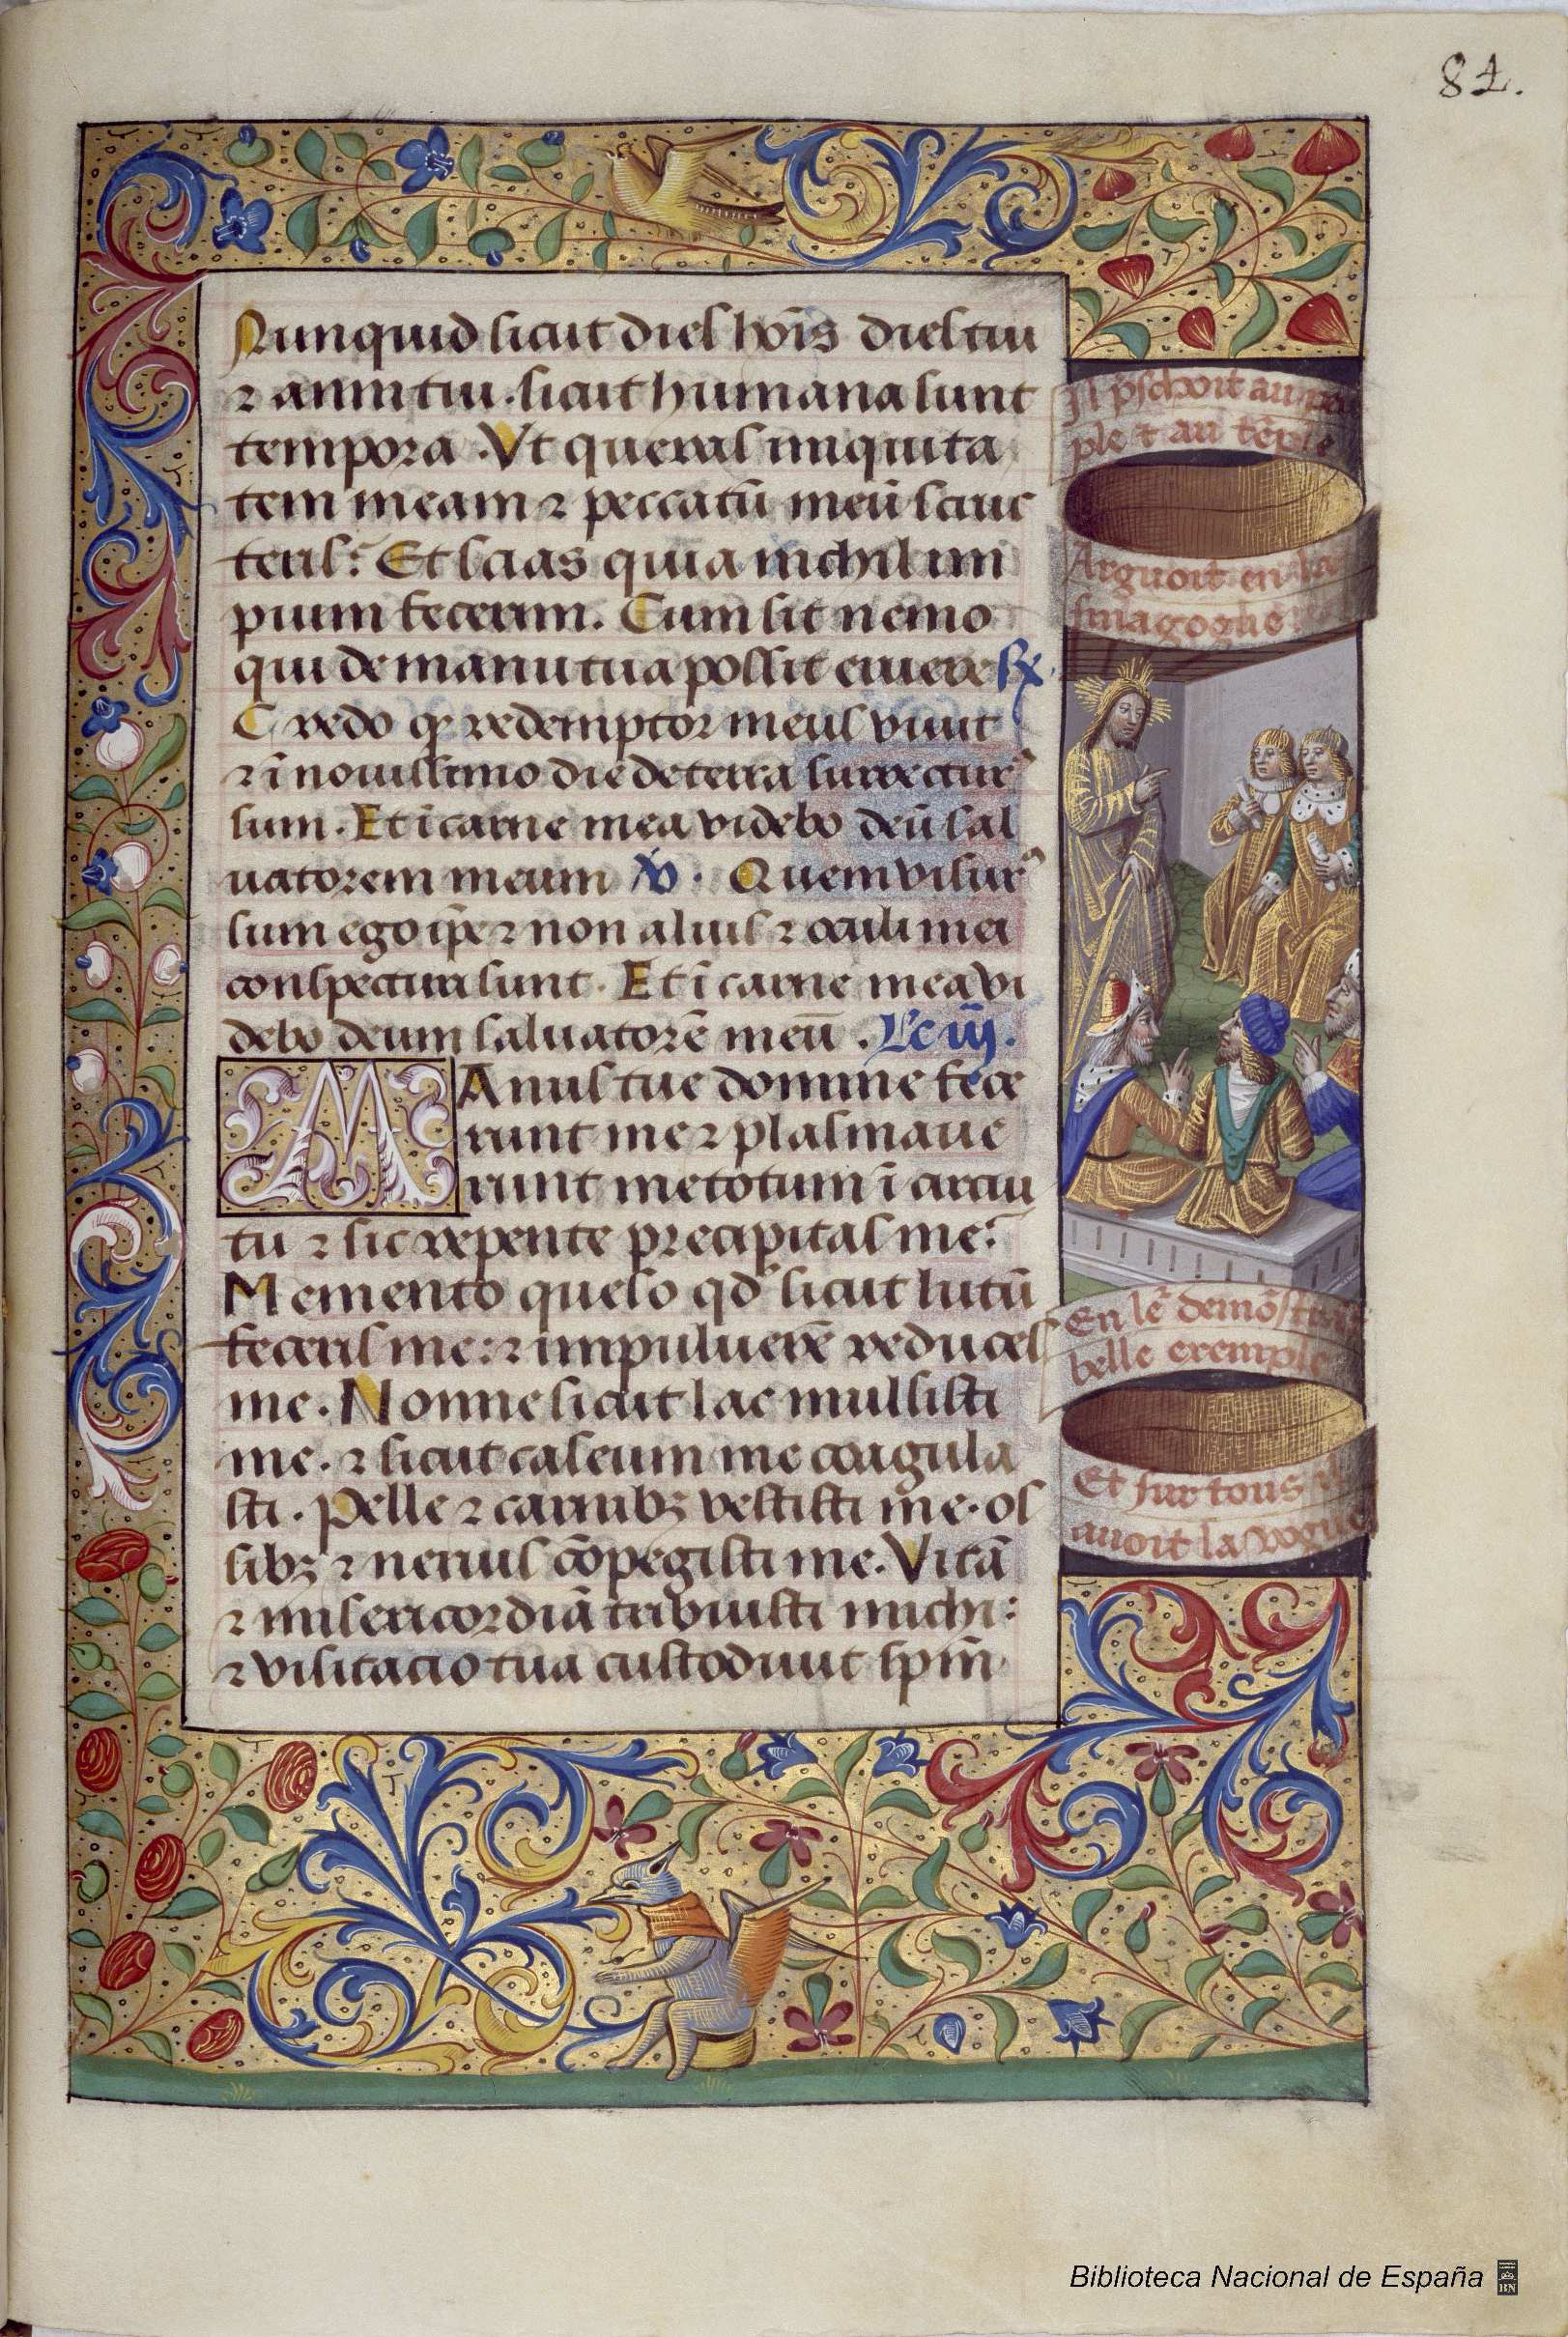 84.
Nunquid sicut dies hoīs dies tui
⁊ anni tui. sicut humana sunt
tempora. Vt queras iniquita
tem meam ⁊ peccatū meū scruc
teris? Et scias quia nichil im
pium fecerim. Cum sit nemo
qui de manu tua possit eruere ℟.
Credo qꝫ redemptor meus viuit
⁊ ī nouissimo die de terra surrecturꝰ
sum. Et ī carne mea videbo deū sal
uatorem meum ℣. Quem visurꝰ
sum ego ip̄e ⁊ non alius ⁊ oculi mei
conspecturi sunt. Et ī carne mea vi
debo deum saluatorē meū. Lc̄ iij.
MAnus tue domine fece
runt me ⁊ plasmaue
runt me totum ī circui
tu ⁊ sic repente precipitas me?
Memento queso qd̓ sicut lutū
feceris me: ⁊ in puluerē reduces
me. Nonne sicut lac mulsisti
me. ⁊ sicut caseum me coagula
sti. Pelle ⁊ carnibꝫ vestisti me. os
sibꝫ ⁊ neruis cōpegisti me. Vitā
⁊ misericordiā tribuisti michi:
⁊ visitacio tua custodiuit sp̄m
Il p̄schoit au peu
ple ⁊ au tēple
Arguoit en la
sinagogue
En lē demōstrāt
belle exemple
Et sur tous il
auoit la vogue
Biblioteca Nacional de España
BN